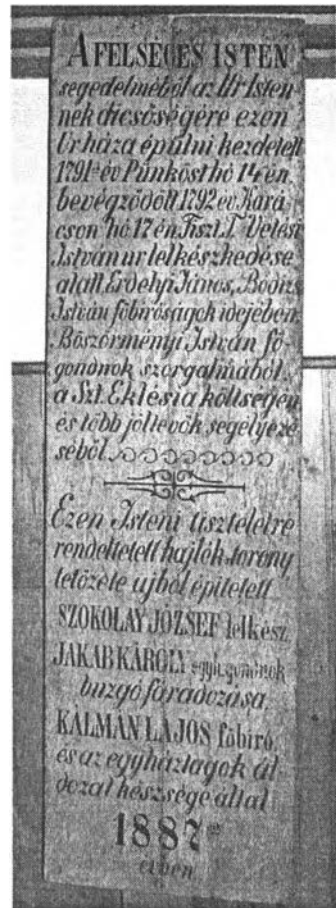 A FELSÉGES ISTEN
segedelméből az Úr Isten
nek dicsőségére ezen
Úr háza épülni kezdetett
1791ik év Pünköst hó 14 én
bevégződött 1792 ev Kará
cson hó 17 én Tiszt. T. Vetési
István ur lelkészkedése
alatt Erdelyi János, Bodizs
István főbiróságok idejében
Böszörményi István fő-
gondnok szorgalmából,
a Szt. Eklésia költségén
és több jóltevők segélyezé
séből.
Ezen Isteni tiszteletre
rendeltetett hajlék, torony
tetőzete ujból épitetett
SZOKOLAY JÓZSEF lelkész
JAKAB KÁROLY egyh. gondnok
buzgó fáradozása,
KÁLMÁN LAJOS főbiró,
és az egyháztagok ál-
dozat készsége által
1887ik
évben